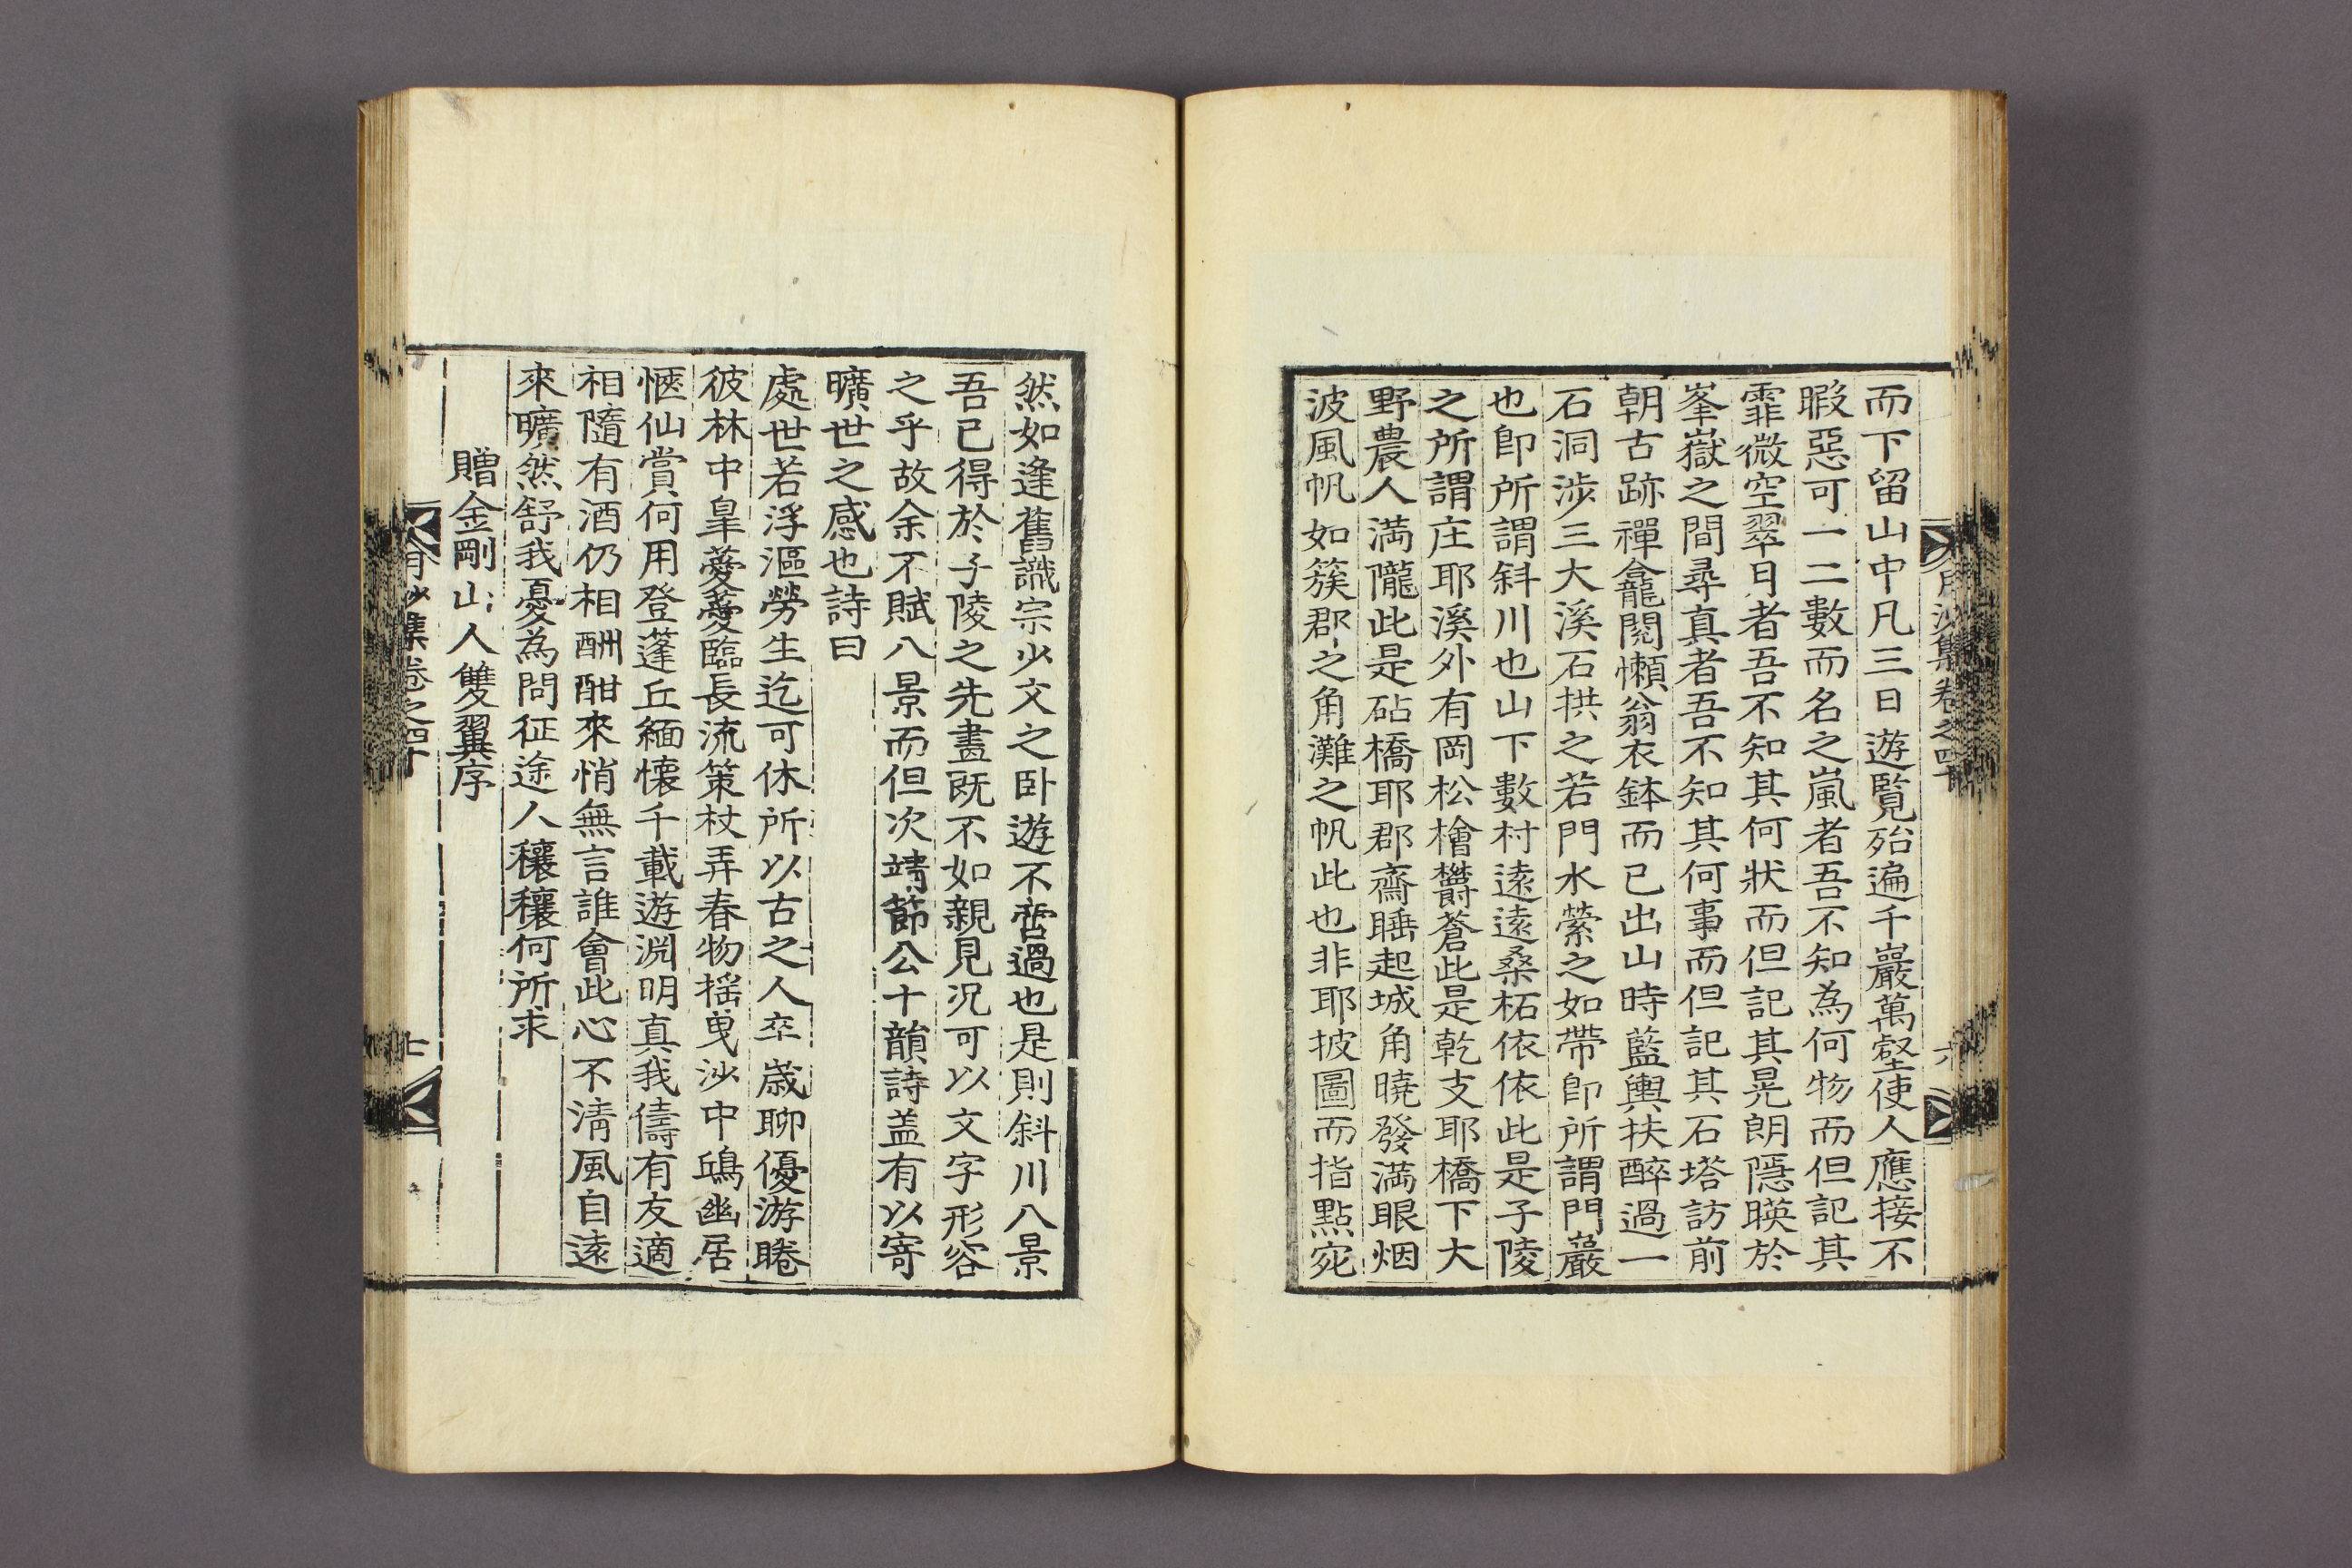 月沙集卷之四十
六
而下留山中凡三日遊覽殆遍千巖萬壑使人應接不
暇惡可一二數而名之嵐者吾不知為何物而但記其
霏微空翠日者吾不知其何狀而但記其晃朗隱暎於
峯嶽之間尋真者吾不知其何事而但記其石塔訪前
朝古跡禪龕閱懶翁衣鉢而已出山時藍輿扶醉過一
石洞涉三大溪石拱之若門水縈之如帶卽所謂門巖
也卽所謂斜川也山下數村遠遠桑柘依依此是子陵
之所謂庄耶溪外有岡松檜欝蒼此是乾支耶橋下大
野農人滿隴此是砧橋耶郡齋睡起城角曉發滿眼烟
波風帆如簇郡之角灘之帆此也非耶披圖而指點宛
然如逢舊識宗少文之卧遊不啻過也是則斜川八景
吾已得於子陵之先畫旣不如親見况可以文字形容
之乎故余不賦八景而但次靖節公十韻詩盖有以寄
曠世之感也詩曰
處世若浮漚勞生迄可休所以古之人卒歲聊優游睠
彼林中皐薆薆臨長流策杖弄春物搖曳沙中鷗幽居
愜仙賞何用登蓬丘緬懷千載遊淵明真我儔有友適
相隨有酒仍相酬酣來悄無言誰會此心不淸風自遠
來曠然舒我憂為問征途人穰穰何所求
贈金剛山人雙翼序
月沙集卷之四十
七